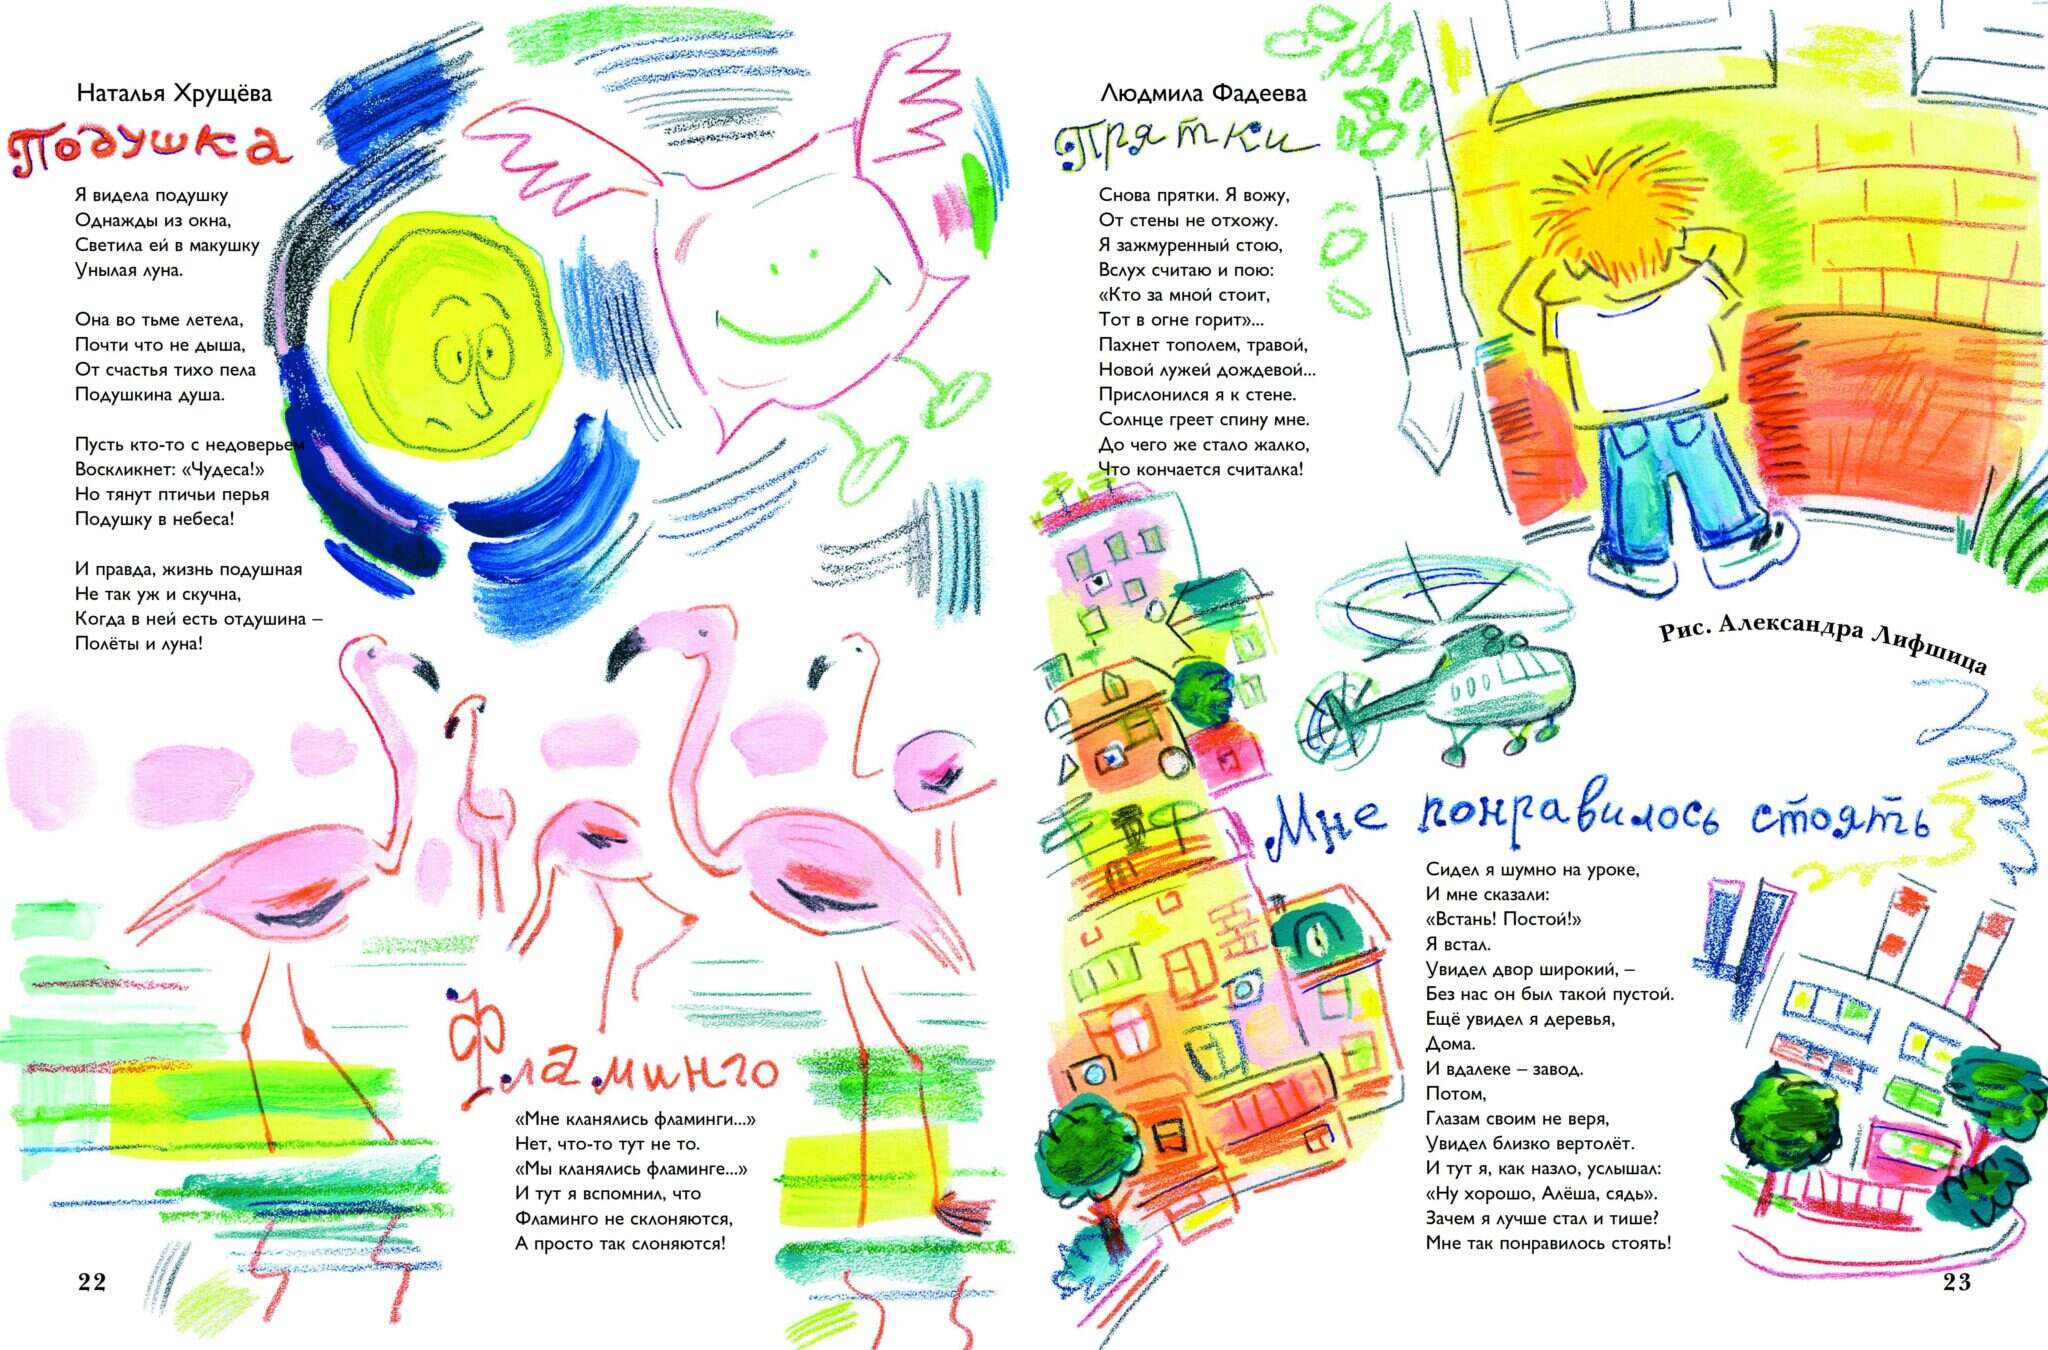 Наталья Хрущёва
Подушка
Я видела подушку
Однажды из окна,
Светила ей в макушку
Унылая луна.
Она во тьме летела,
Почти что не дыша,
От счастья тихо пела
Подушкина душа.
Пусть кто-то с недоверьем
Воскликнет: «Чудеса!»
Но тянут птичьи перья
Подушку в небеса!
И правда, жизнь подушная
Не так уж и скучна,
Когда в ней есть отдушина –
Полёты и луна!
Фламинго
«Мне кланялись фламинги...»
Нет, что-то тут не то.
«Мы кланялись фламинге...»
И тут я вспомнил, что
Фламинго не склоняются,
А просто так слоняются!
22
Людмила Фадеева
Прятки
Снова прятки. Я вожу,
От стены не отхожу.
Я зажмуренный стою,
Вслух считаю и пою:
«Кто за мной стоит,
Тот в огне горит»...
Пахнет тополем, травой,
Новой лужей дождевой...
Прислонился я к стене.
Солнце греет спину мне.
До чего же стало жалко,
Что кончается считалка!
Рис. Александра Лифшица
Мне понравилось стоять
Сидел я шумно на уроке,
И мне сказали:
«Встань! Постой!»
Я встал.
Увидел двор широкий, –
Без нас он был такой пустой.
Ещё увидел я деревья,
Дома.
И вдалеке – завод.
Потом,
Глазам своим не веря,
Увидел близко вертолёт.
И тут я, как назло, услышал:
«Ну хорошо, Алёша, сядь».
Зачем я лучше стал и тише?
Мне так понравилось стоять!
23